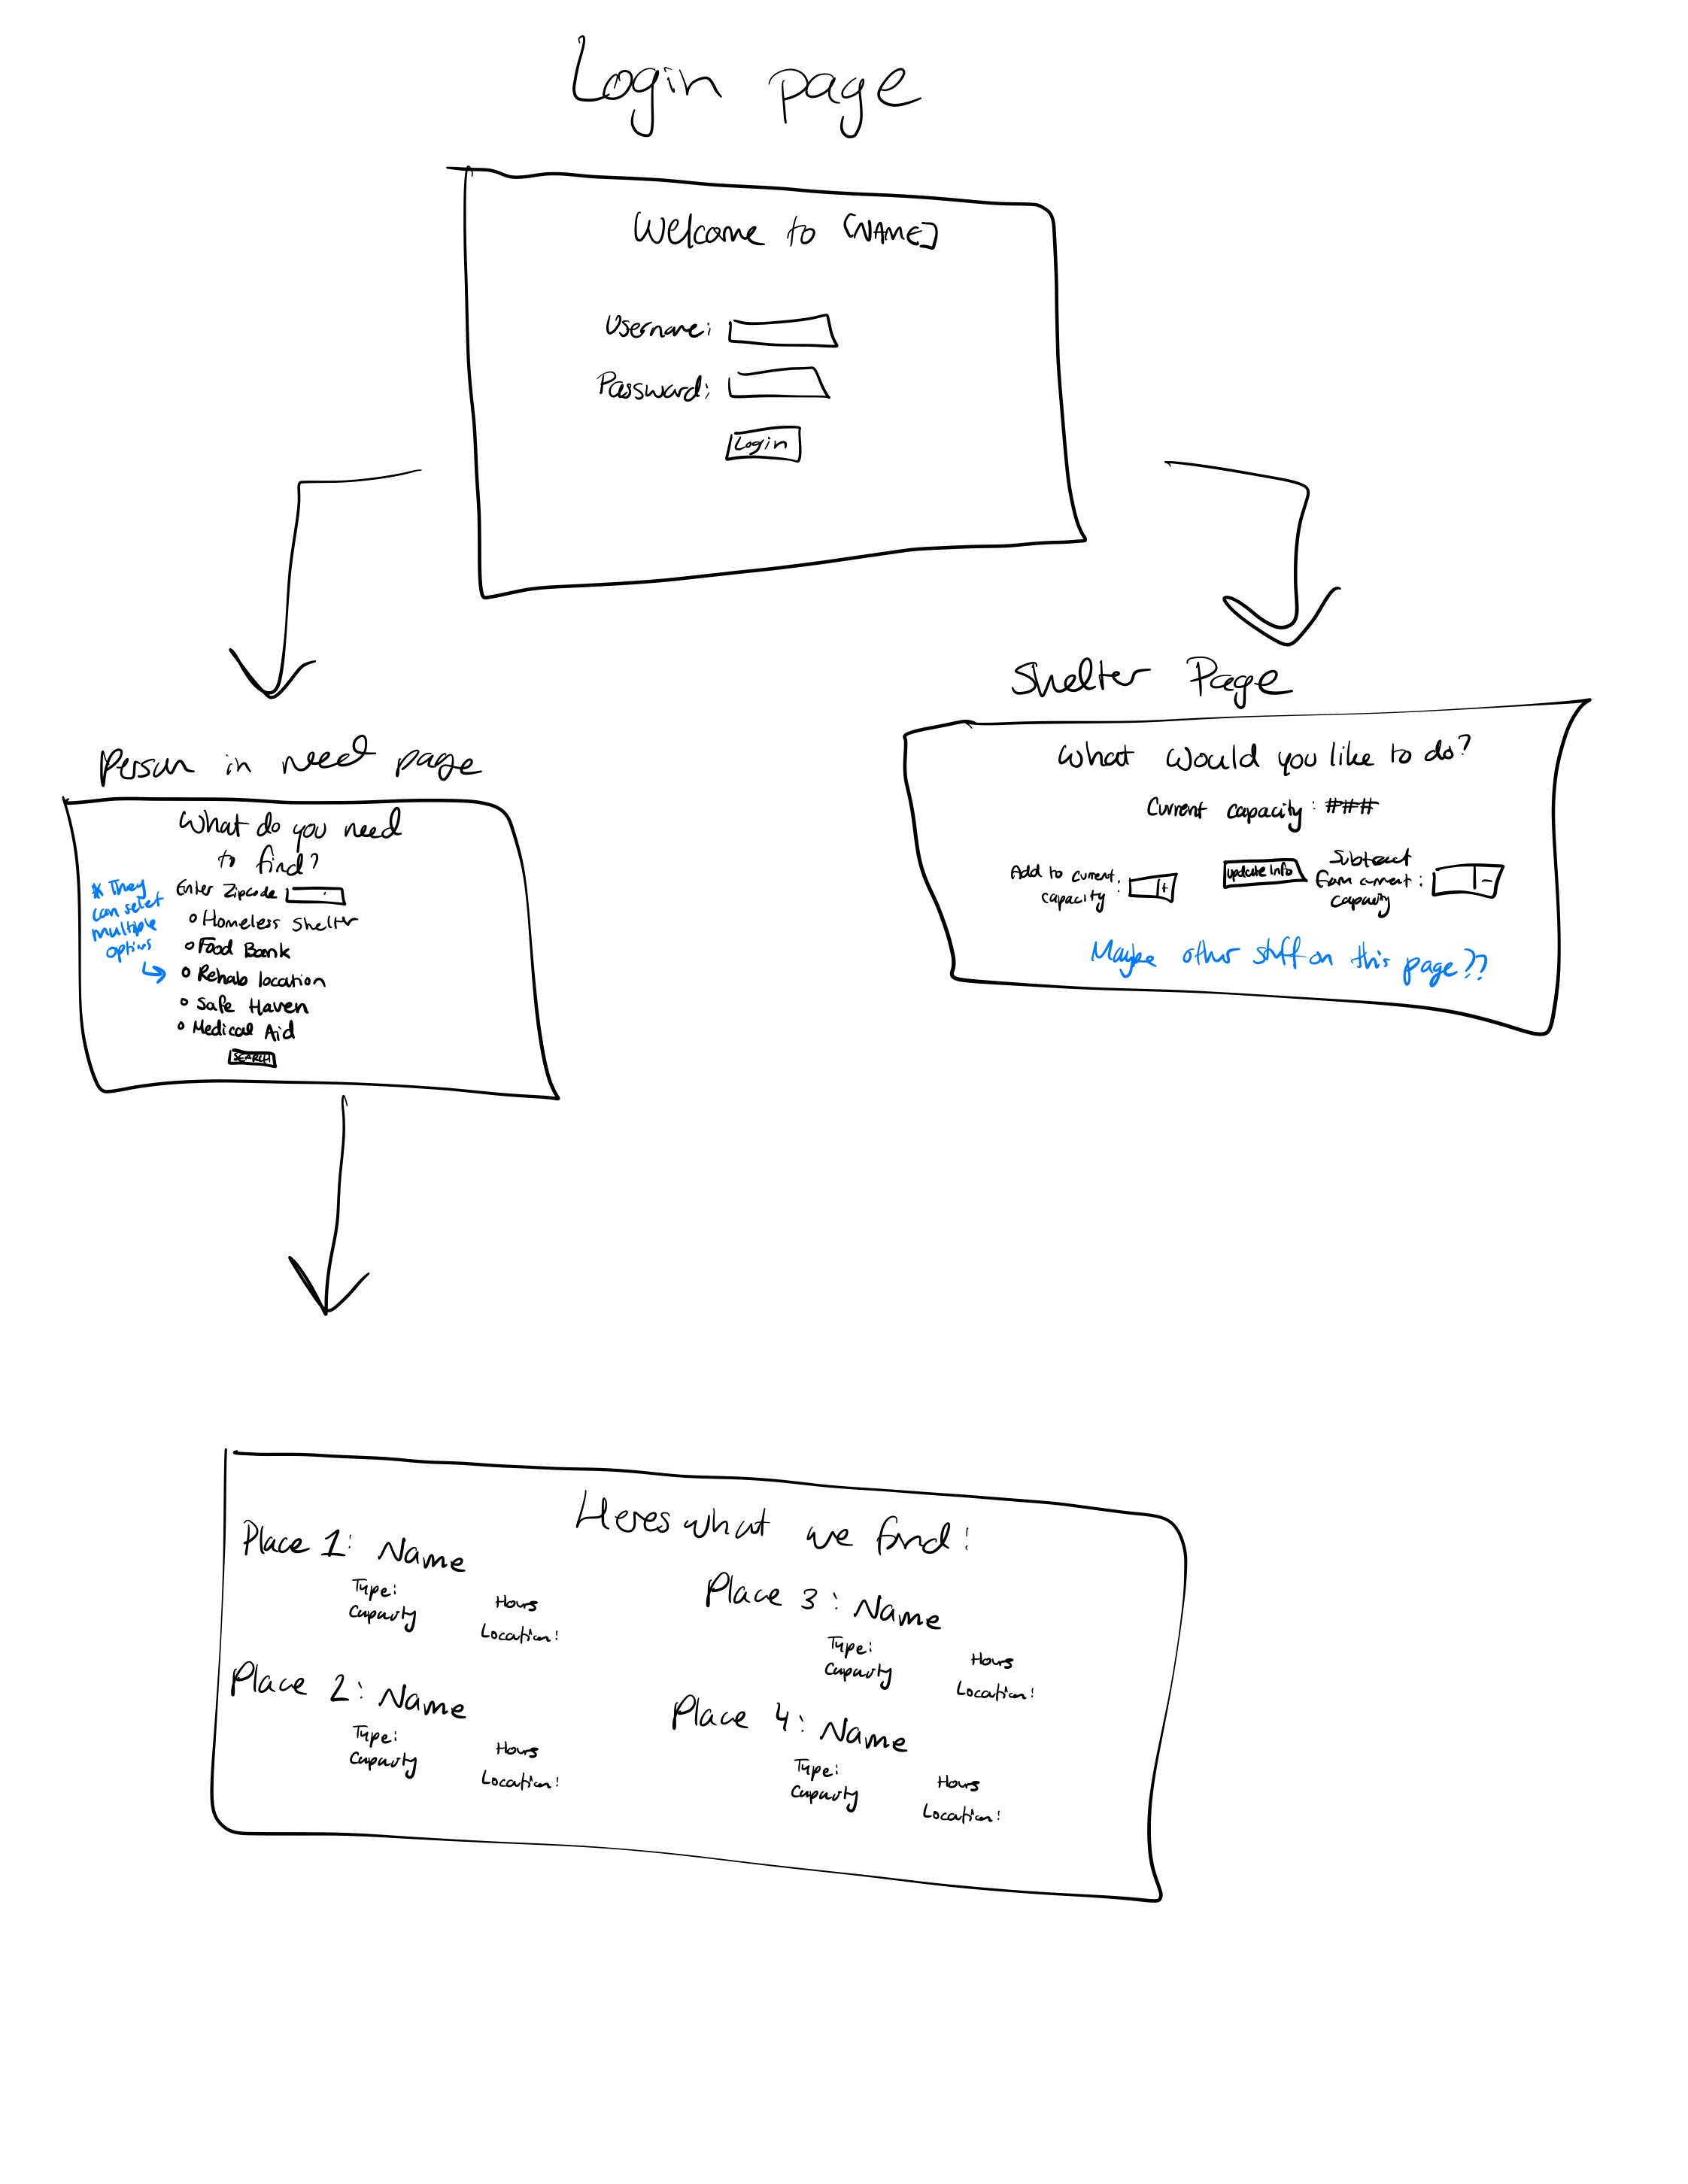 Login page
Welcome to [NAME]
Username:
Password:
Login
Person in need page
What do you need
to find?
Enter Zipcode
* They
can select
multiple
options
Homeless Shelter
Food Bank
Rehab location
Safe Haven
Medical Aid
SEARCH
Shelter Page
What would you like to do?
Current capacity: ###
Add to current
capacity:
+
update info
Subtract
from current:
capacity
-
Maybe other stuff on this page??
Heres what we find!
Place 1: Name
Type:
Capacity
Hours
Location:
Place 2: Name
Type:
Capacity
Hours
Location:
Place 3: Name
Type:
Capacity
Hours
Location:
Place 4: Name
Type:
Capacity
Hours
Location: